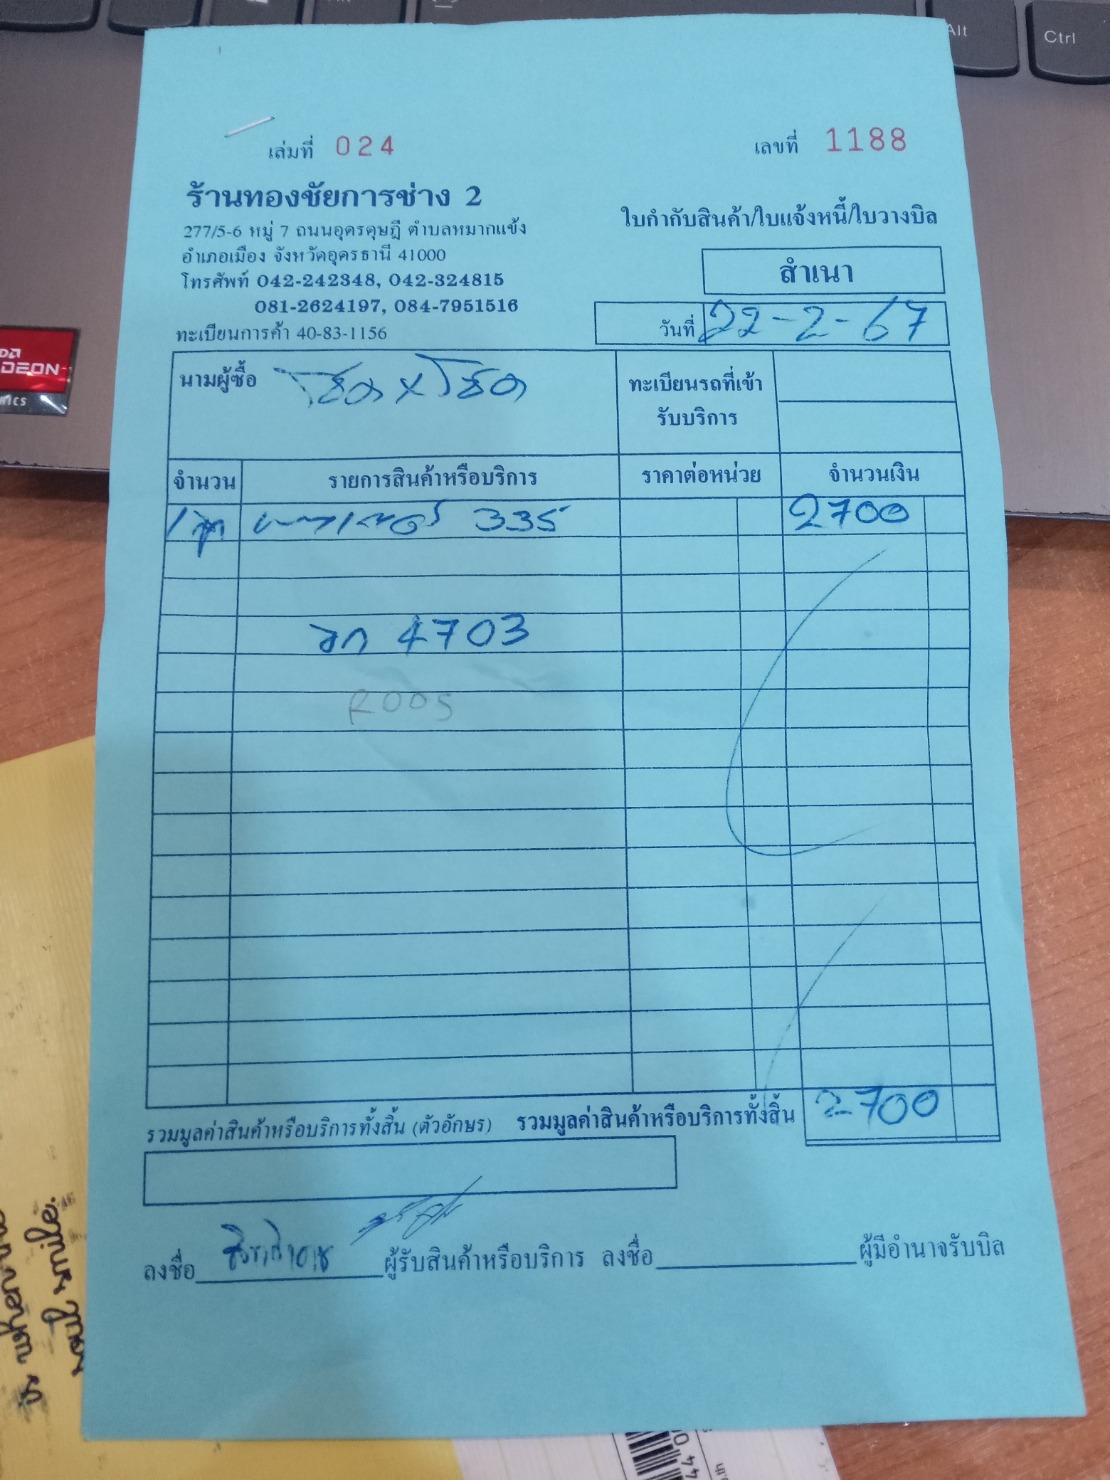 Alt
Ctrl
เล่มที่ 024
เลขที่ 1188
ร้านทองชัยการช่าง 2
277/5-6 หมู่ 7 ถนนอุดรดุษฎี ตำบลหมากแข้ง
อำเภอเมือง จังหวัดอุดรธานี 41000
โทรศัพท์ 042-242348, 042-324815
081-2624197, 084-7951516
ทะเบียนการค้า 40-83-1156
ใบกำกับสินค้า/ใบแจ้งหนี้/ใบวางบิล
สำเนา
วันที่ 22-2-67
นามผู้ซื้อ โชค x โชค
ทะเบียนรถที่เข้า
รับบริการ
จำนวน รายการสินค้าหรือบริการ ราคาต่อหน่วย จำนวนเงิน
1 335 2700
4703
R005
รวมมูลค่าสินค้าหรือบริการทั้งสิ้น (ตัวอักษร) รวมมูลค่าสินค้าหรือบริการทั้งสิ้น 2700
ลงชื่อ ผู้รับสินค้าหรือบริการ ลงชื่อ ผู้มีอำนาจรับบิล
when
smile.